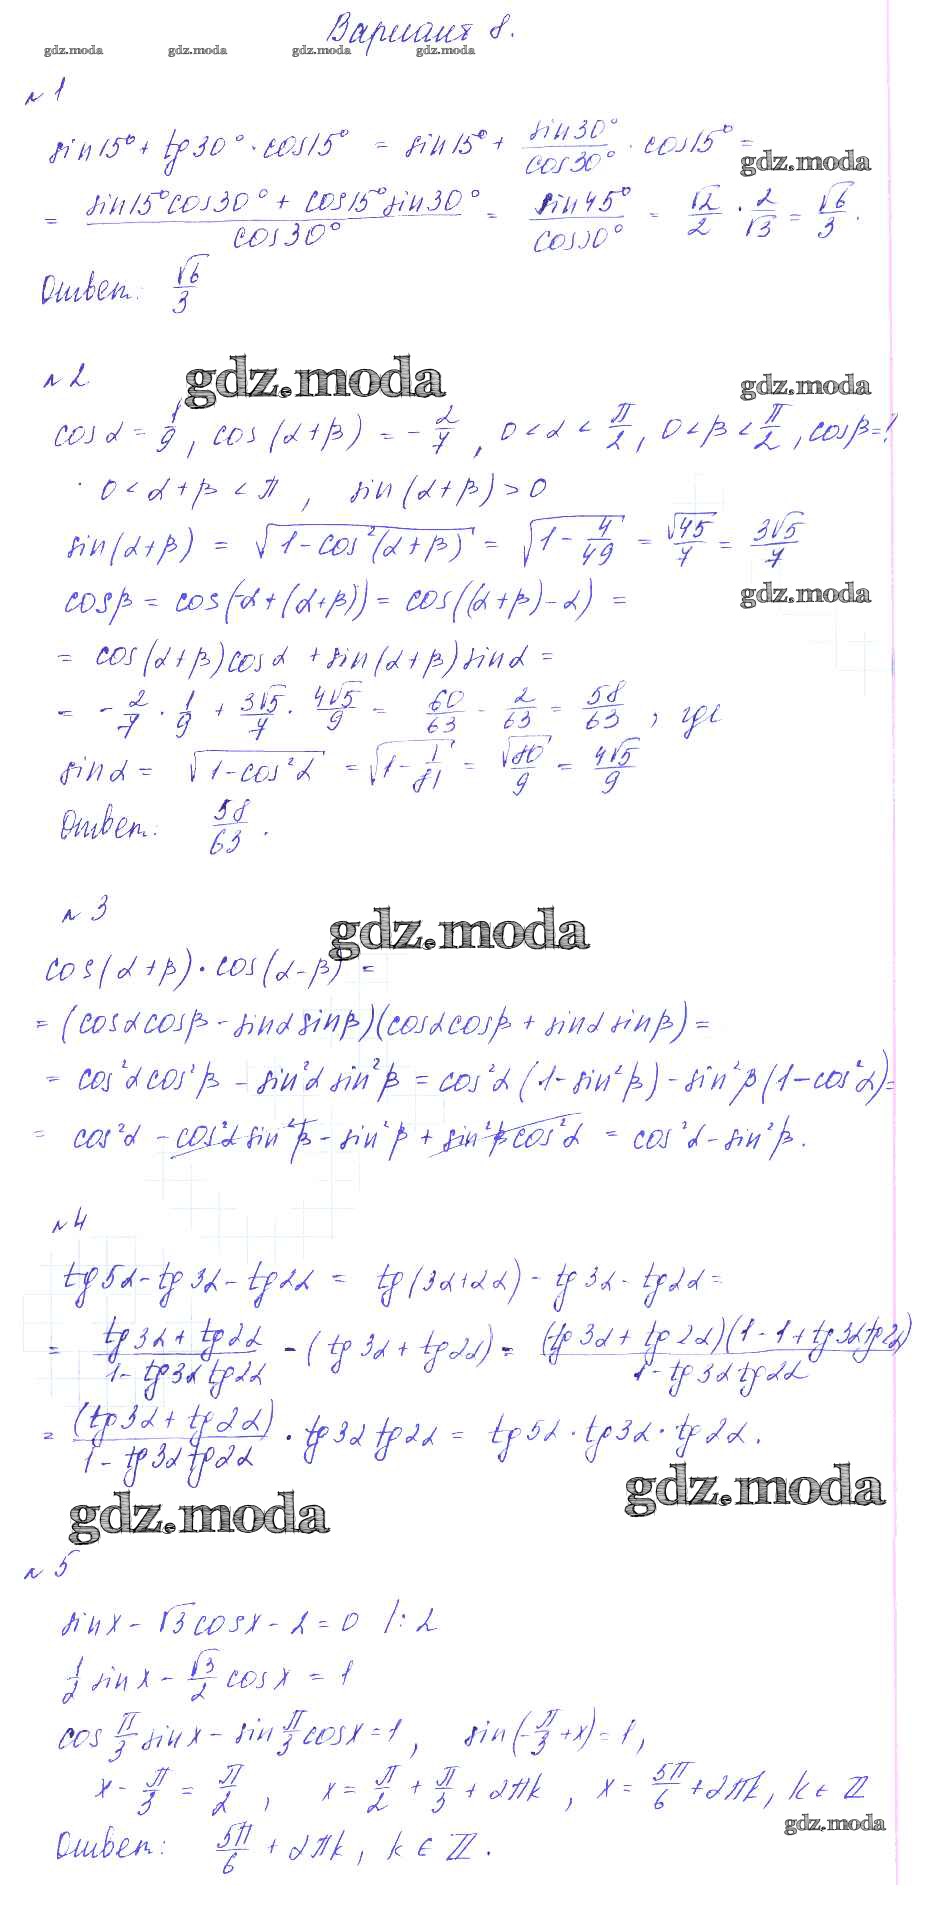 Вариант 8.
gdz.moda gdz.moda gdz.moda gdz.moda
№1
sin15° + tg30° · cos15° = sin15° + sin30°/cos30° · cos15° =
gdz.moda
= (sin15°cos30° + cos15°sin30°)/cos30° = sin45°/cos30° = √2/2 · 2/√3 = √6/3.
Ответ: √6/3
№2
gdz.moda gdz.moda
cosα = 1/9, cos(α+β) = -2/7, 0<α<π/2, 0<β<π/2, cosβ=?
0<α+β<π, sin(α+β)>0
sin(α+β) = √(1-cos²(α+β)) = √(1-4/49) = √45/7 = 3√5/7
cosβ = cos(-α+(α+β)) = cos((α+β)-α) =
gdz.moda
= cos(α+β)cosα + sin(α+β)sinα =
= -2/7 · 1/9 + 3√5/7 · 4√5/9 = 60/63 - 2/63 = 58/63, где
sinα = √(1-cos²α) = √(1-1/81) = √80/9 = 4√5/9
Ответ: 58/63.
№3
gdz.moda
cos(α+β)·cos(α-β) =
= (cosαcosβ - sinαsinβ)(cosαcosβ + sinαsinβ) =
= cos²αcos²β - sin²αsin²β = cos²α(1-sin²β) - sin²β(1-cos²α) =
= cos²α - cos²αsin²β - sin²β + sin²βcos²α = cos²α - sin²β.
№4
tg5α - tg3α - tg2α = tg(3α+2α) - tg3α - tg2α =
= (tg3α + tg2α)/(1 - tg3αtg2α) - (tg3α + tg2α) = (tg3α + tg2α)(1-1+tg3αtg2α)/(1 - tg3αtg2α)
= (tg3α + tg2α)/(1 - tg3αtg2α) · tg3αtg2α = tg5α · tg3α · tg2α.
gdz.moda gdz.moda
№5
sinx - √3cosx - 2 = 0 /:2
1/2 sinx - √3/2 cosx = 1
cos π/3 sinx - sin π/3 cosx = 1, sin(-π/3 + x) = 1,
x - π/3 = π/2, x = π/2 + π/3 + 2πk, x = 5π/6 + 2πk, k∈Z
gdz.moda
Ответ: 5π/6 + 2πk, k∈Z.